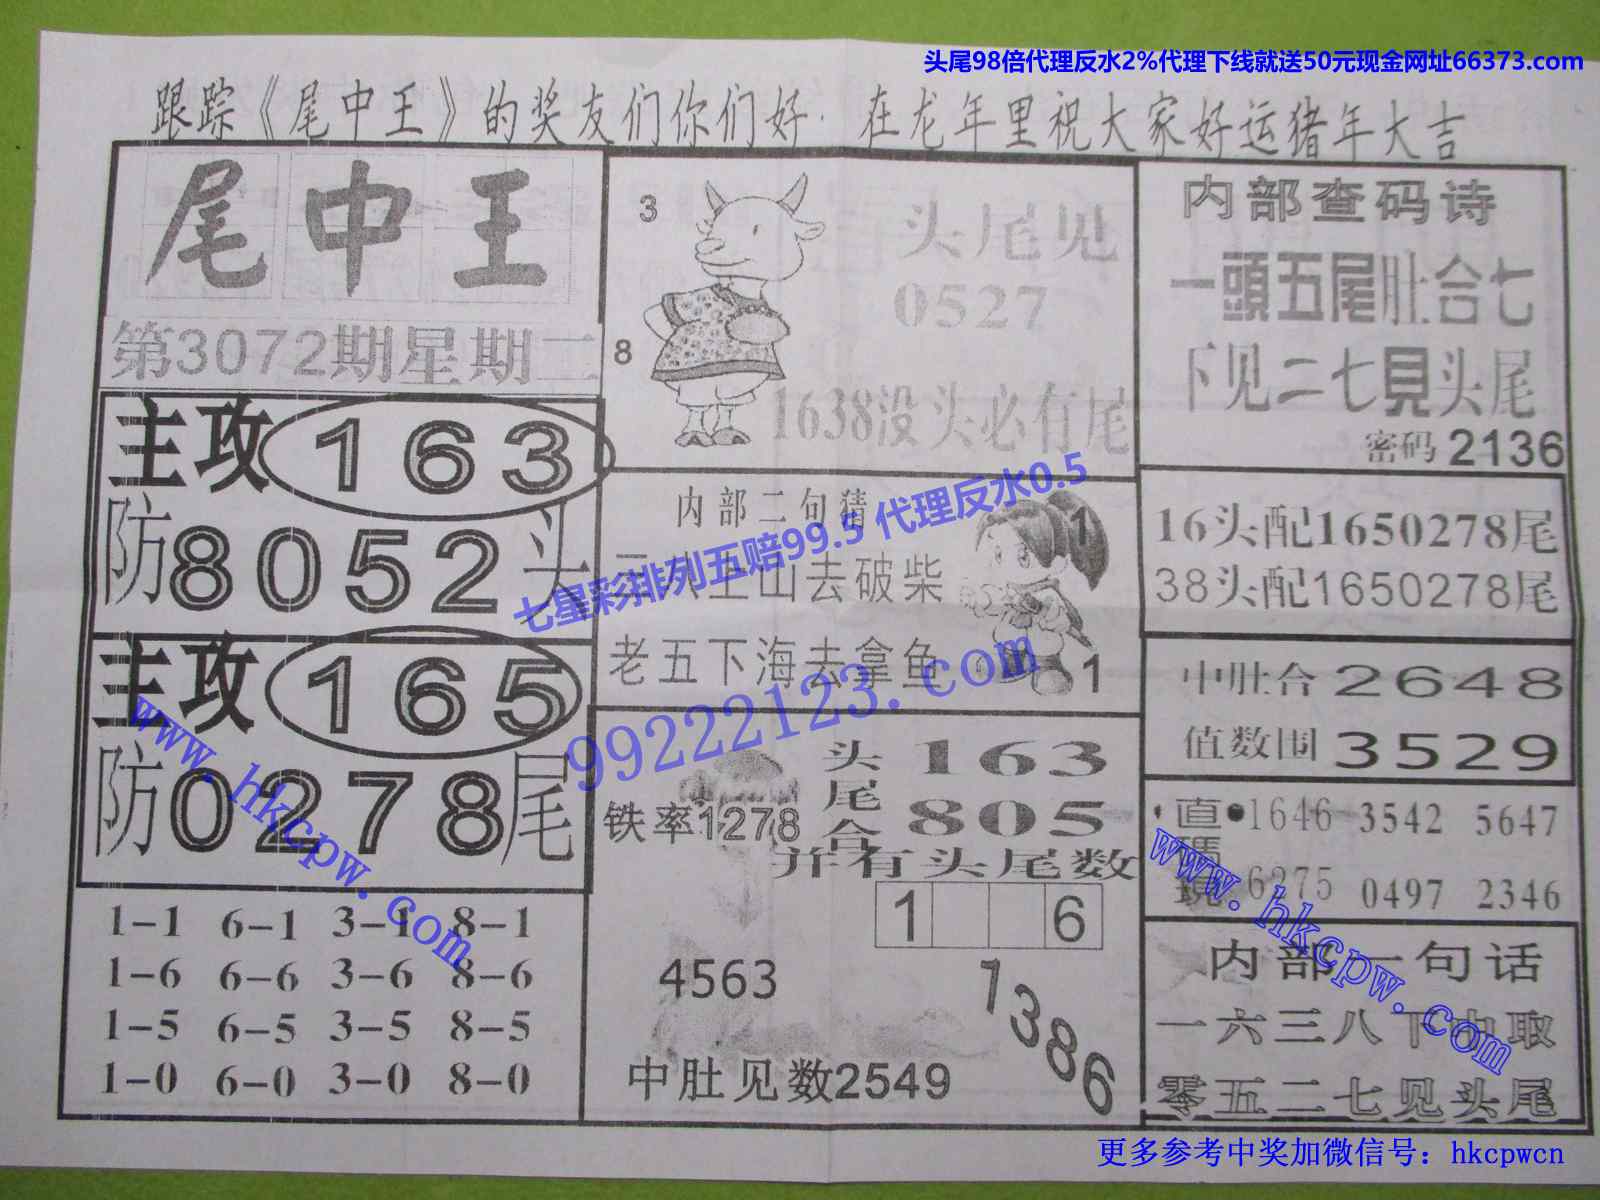 头尾98倍代理反水2%代理下线就送50元现金网址66373.com
跟踪《尾中王》的奖友们你们好·在龙年里祝大家好运猪年大吉
尾中王
第3072期星期二
主攻163
防8052头
主攻165
防0278尾
1-1 6-1 3-1 8-1
1-6 6-6 3-6 8-6
1-5 6-5 3-5 8-5
1-0 6-0 3-0 8-0
3
8
头尾见
0527
1638没头必有尾
内部二句猜
上山去破柴
1
老五下海去拿鱼
1
七星彩排列五赔99.5 代理反水0.5
99222123.com
铁率1278
头尾合
163
805
并有头尾数
1 6
4563
7386
中肚见数2549
内部查码诗
一頭五尾肚合七
下见二七見头尾
密码2136
16头配1650278尾
38头配1650278尾
中肚合2648
值数围3529
直碼
1646 3542 5647
6275 0497 2346
内部一句话
一六三八下取
零五二七见头尾
www.hkcpw.com
www.hkcpw.com
更多参考中奖加微信号：hkcpwcn